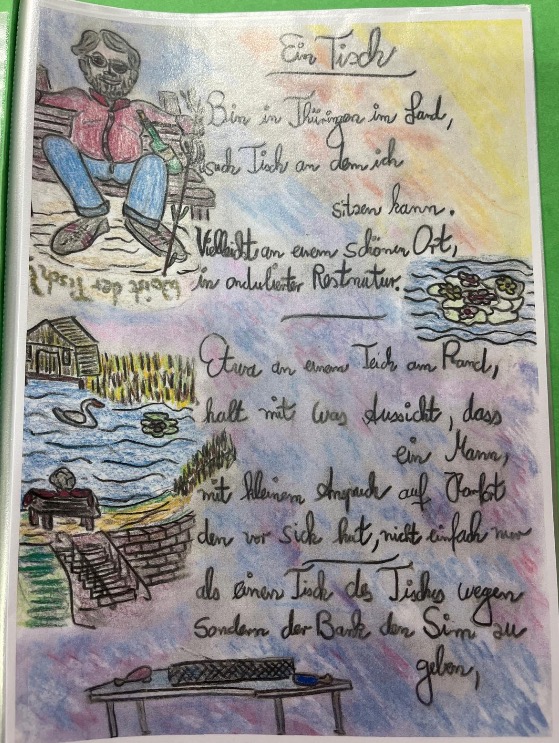 Ein Tisch
Bin in Thüringen im Land,
such Tisch an dem ich
sitzen kann.
Vielleicht an einem schönen Ort,
in ondulierter Restnatur.
Wo ist der Tisch?
Etwa an einem Teich am Rand,
halt mit was Aussicht, dass
ein Mann,
mit kleinem Anspruch auf
den vor sich hat, nicht einfach nur
als einen Tisch des Tisches wegen
sondern der Bank den Sinn zu
geben,